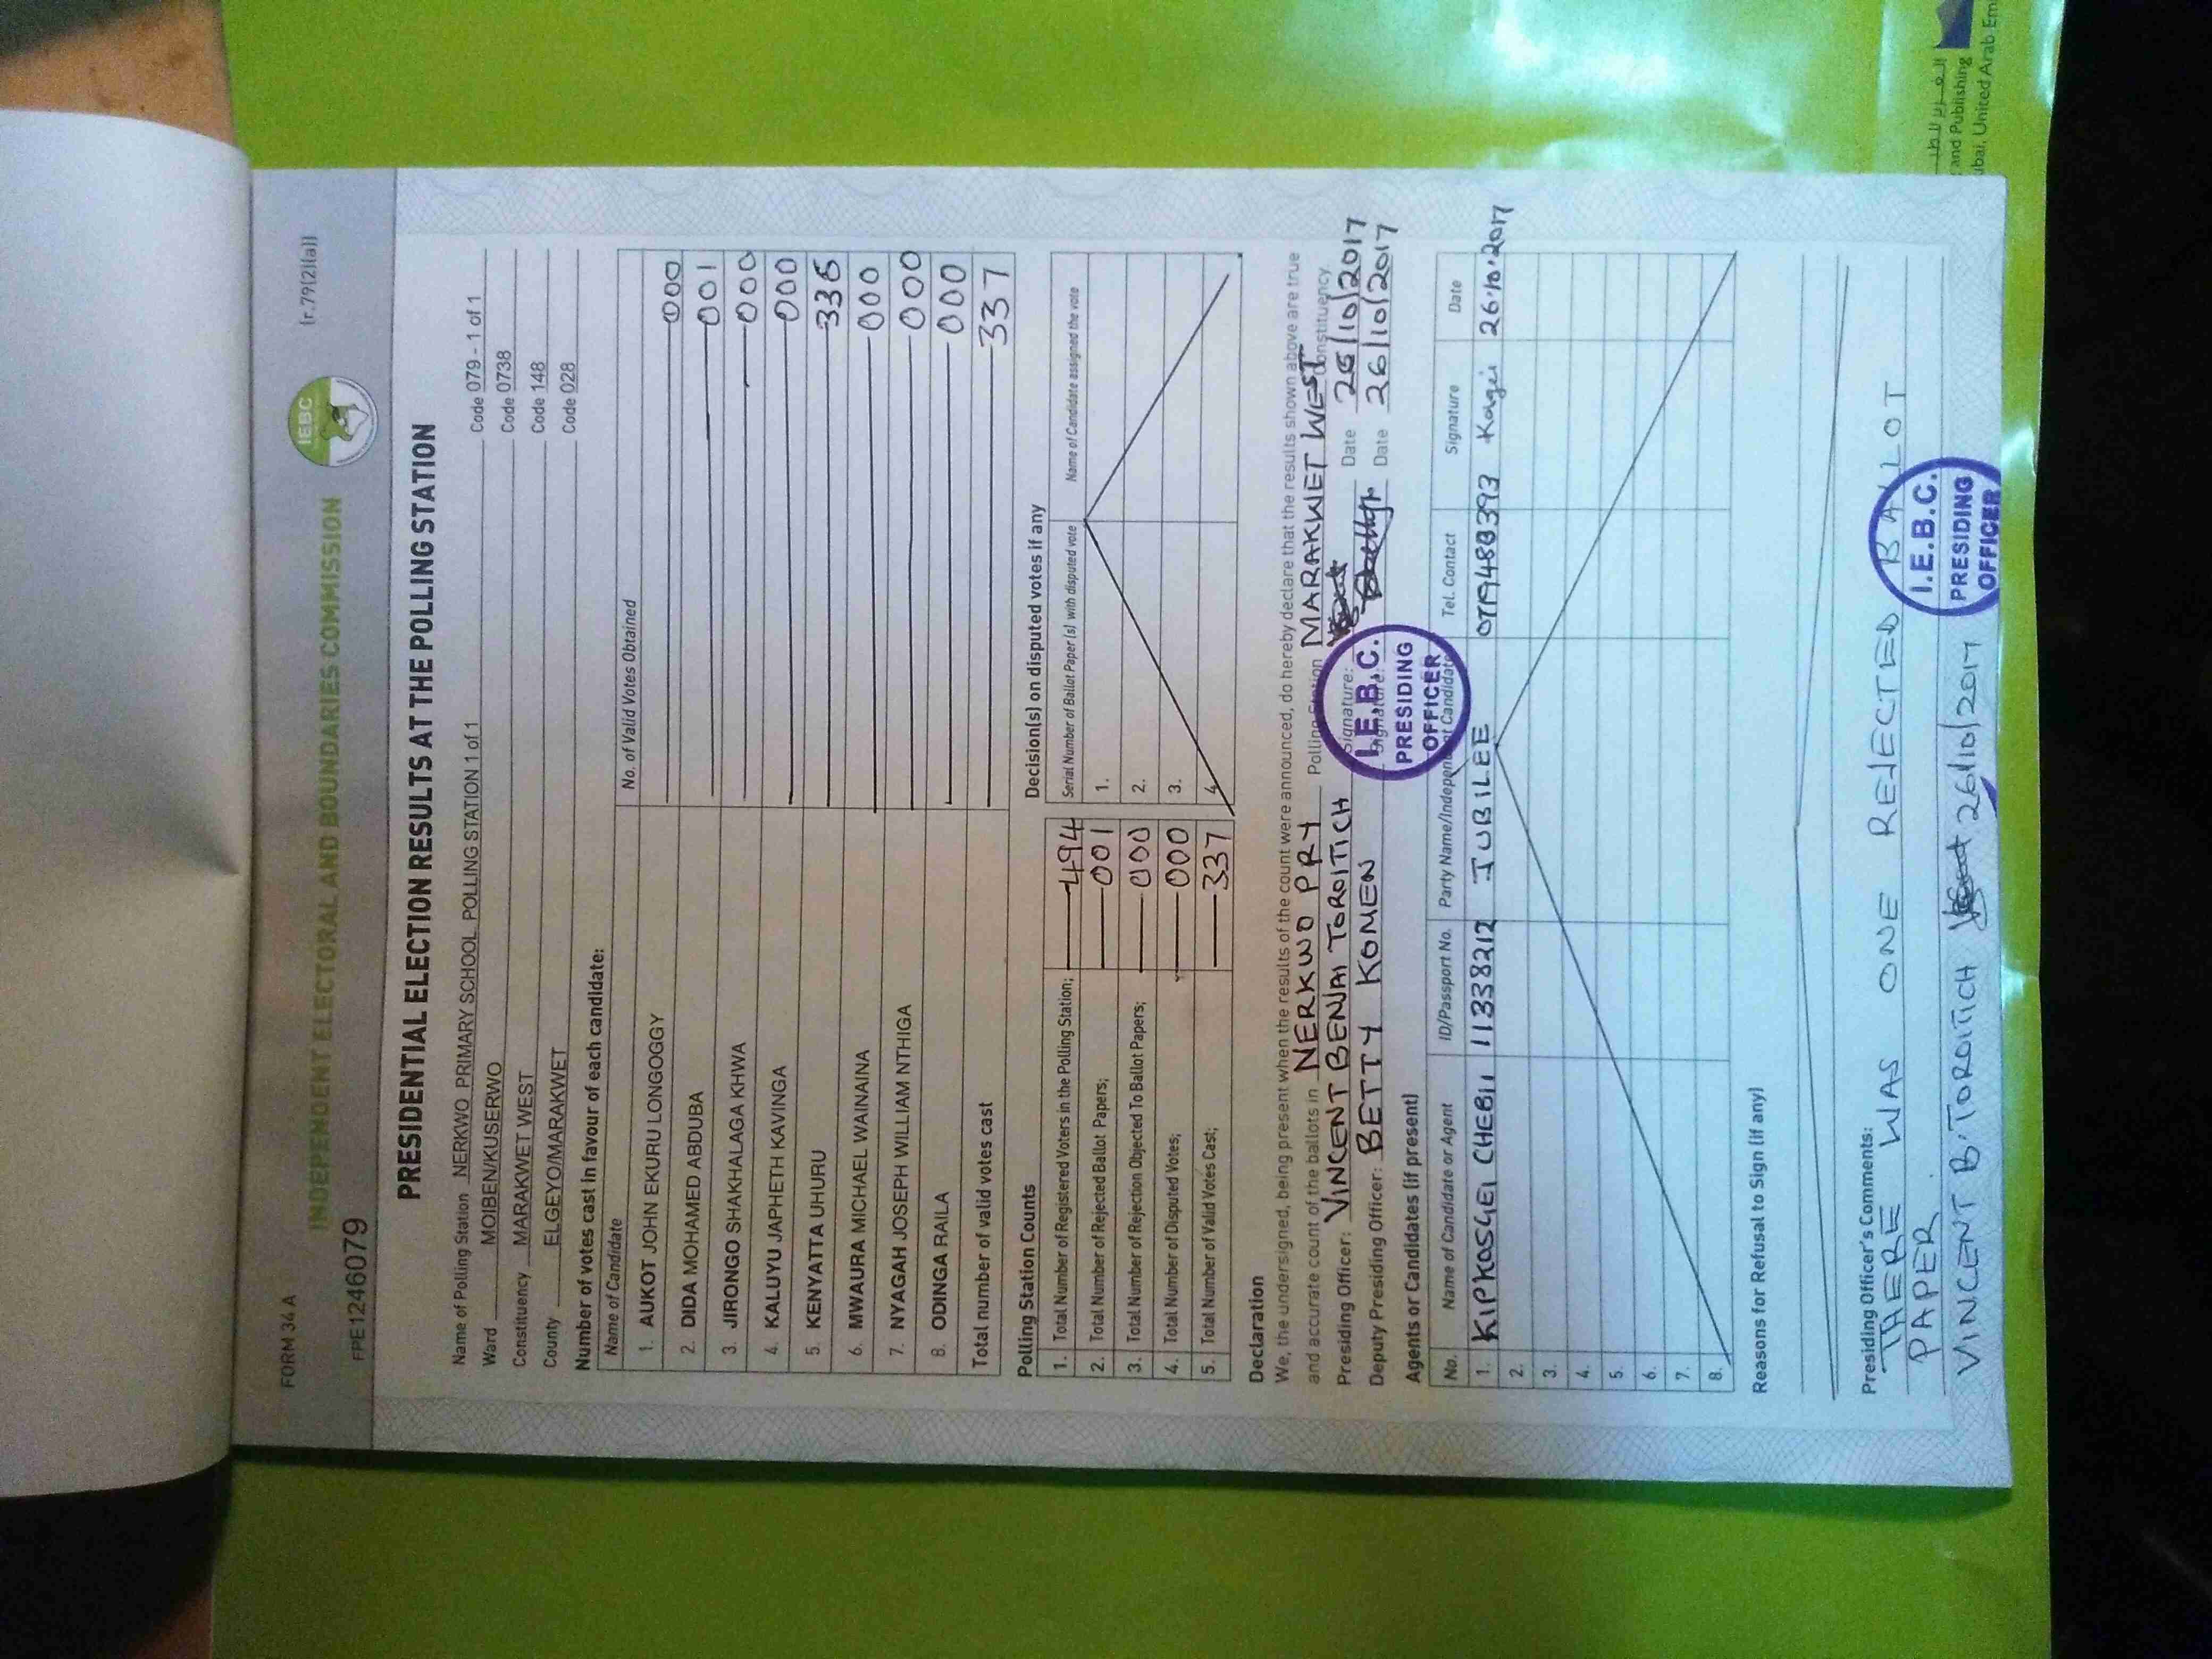 FORM 34 A
(r.79(2)(a))
INDEPENDENT ELECTORAL AND BOUNDARIES COMMISSION
IEBC
FPE1246079
PRESIDENTIAL ELECTION RESULTS AT THE POLLING STATION
Name of Polling Station NERKWO PRIMARY SCHOOL POLLING STATION 1 of 1 Code 079 - 1 of 1
Ward MOIBEN/KUSERWO Code 0738
Constituency MARAKWET WEST Code 148
County ELGEYO/MARAKWET Code 028
Number of votes cast in favour of each candidate:
Name of Candidate No. of Valid Votes Obtained
1. AUKOT JOHN EKURU LONGOGGY 000
2. DIDA MOHAMED ABDUBA 001
3. JIRONGO SHAKHALAGA KHWA 000
4. KALUYU JAPHETH KAVINGA 000
5. KENYATTA UHURU 336
6. MWAURA MICHAEL WAINAINA 000
7. NYAGAH JOSEPH WILLIAM NTHIGA 000
8. ODINGA RAILA 000
Total number of valid votes cast 337
Polling Station Counts
1. Total Number of Registered Voters in the Polling Station; 494
2. Total Number of Rejected Ballot Papers; 001
3. Total Number of Rejection Objected To Ballot Papers; 000
4. Total Number of Disputed Votes; 000
5. Total Number of Valid Votes Cast; 337
Decision(s) on disputed votes if any
Serial Number of Ballot Paper(s) with disputed vote Name of Candidate assigned the vote
1.
2.
3.
4.
Declaration
We, the undersigned, being present when the results of the count were announced, do hereby declare that the results shown above are true
and accurate count of the ballots in NERKWO PRY Polling Station MARAKWET WEST Constituency.
Presiding Officer: VINCENT BENJAI TOROITICH Signature: Date 26/10/2017
Deputy Presiding Officer: BETTY KOMEN Signature: Date 26/10/2017
I.E.B.C.
PRESIDING
OFFICER
Agents or Candidates (if present)
No. Name of Candidate or Agent ID/Passport No. Party Name/Independent Candidate Tel. Contact Signature Date
1. KIPKOSGEI CHEBII 11338212 JUBILEE Kosgei 26.10.2017
2.
3.
4.
5.
6.
7.
8.
Reasons for Refusal to Sign (if any)
Presiding Officer's Comments:
THERE WAS ONE REJECTED BALLOT
PAPER.
VINCENT B. TOROITICH 26/10/2017
I.E.B.C.
PRESIDING
OFFICER
and Publishing
ubai, United Arab Em